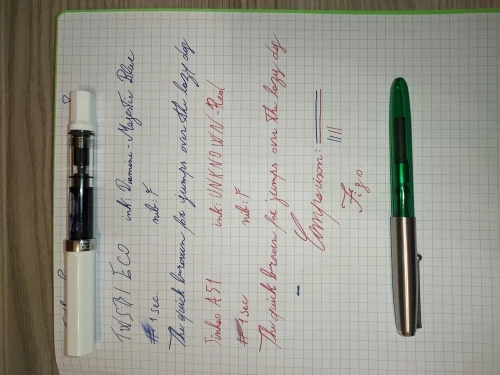 TWSBI ECO ink: Diamine - Majestic Blue
#1 sec nib: F
The quick brown fox jumps over the lazy dog
Jinhao A51 ink: UNKNOWN - Red
#1 sec nib: F
The quick brown fox jumps over the lazy dog
Comparison: